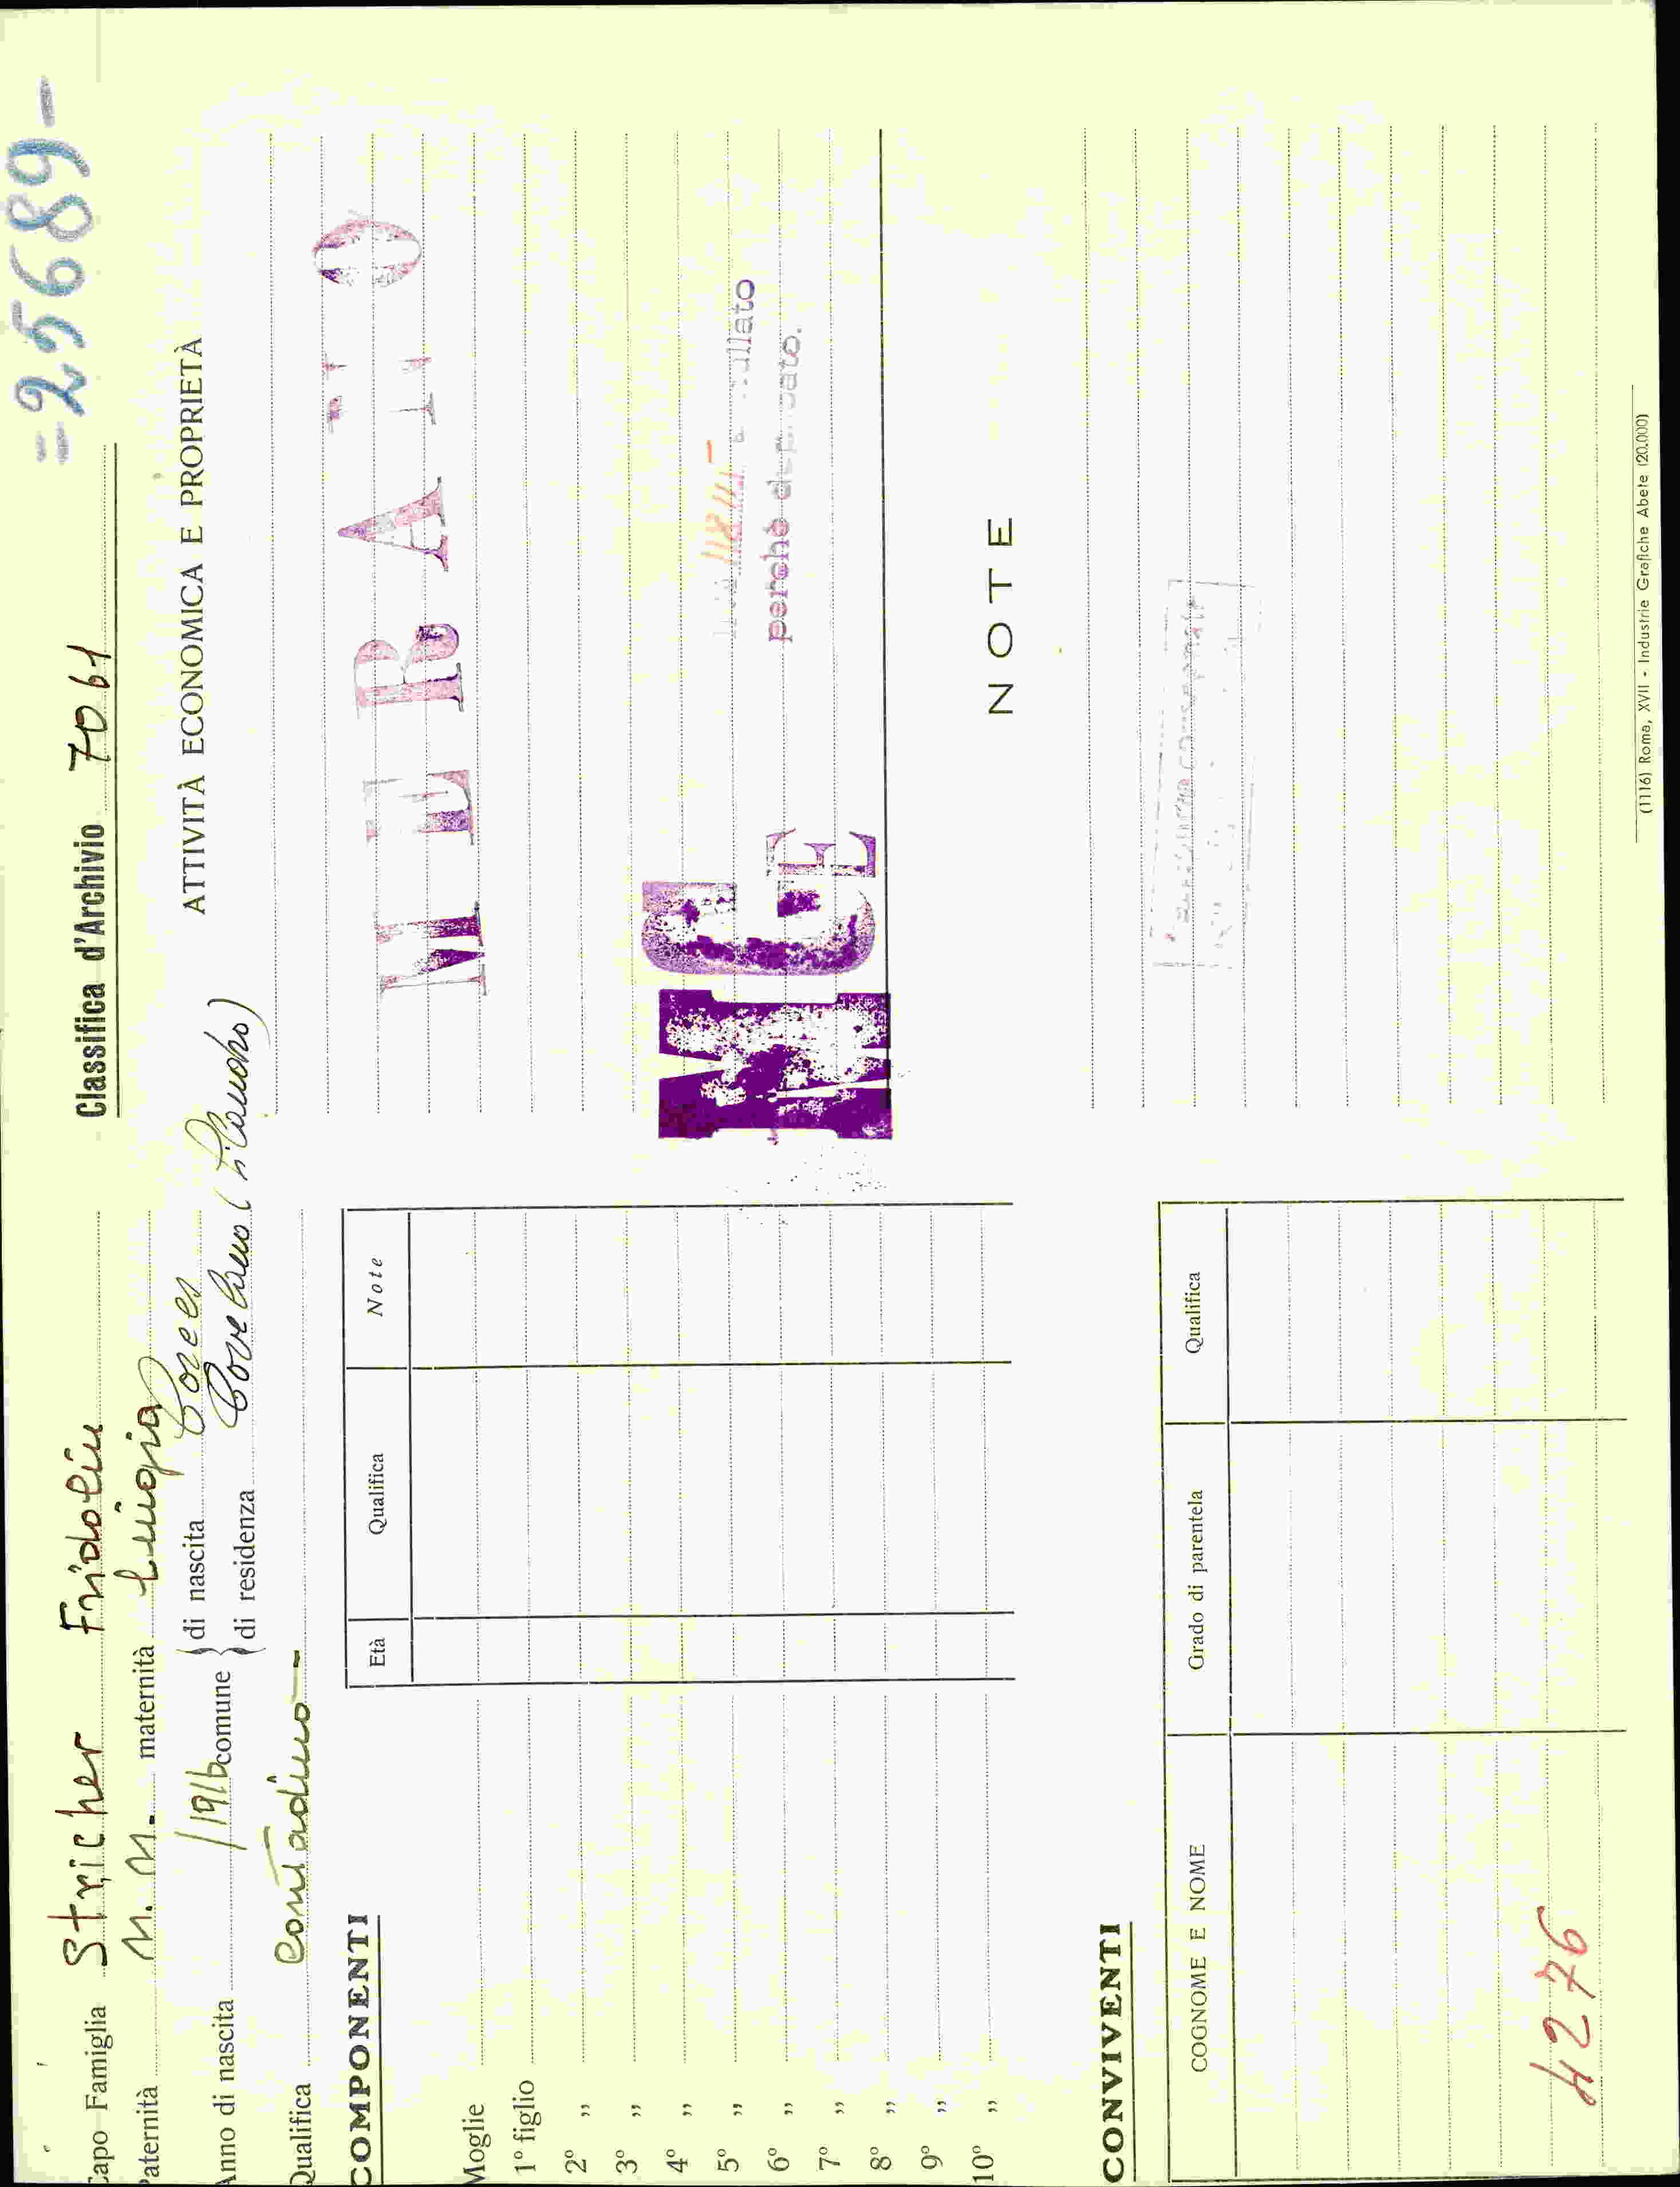 =25689-
Classifica d'Archivio 7061
Capo Famiglia Stricher Fridolin
Paternità N. N. maternità Luigia
Anno di nascita /1916 comune di nascita Corces
di residenza Covelano (Silandro)
Qualifica contadino-
ATTIVITÀ ECONOMICA E PROPRIETÀ
MIGRATO
MIGE
perchè
COMPONENTI
Età Qualifica Note
Moglie
1° figlio
2° „
3° „
4° „
5° „
6° „
7° „
8° „
9° „
10° „
NOTE
CONVIVENTI
COGNOME E NOME Grado di parentela Qualifica
4276
(1116) Roma, XVII - Industrie Grafiche Abete (20.000)